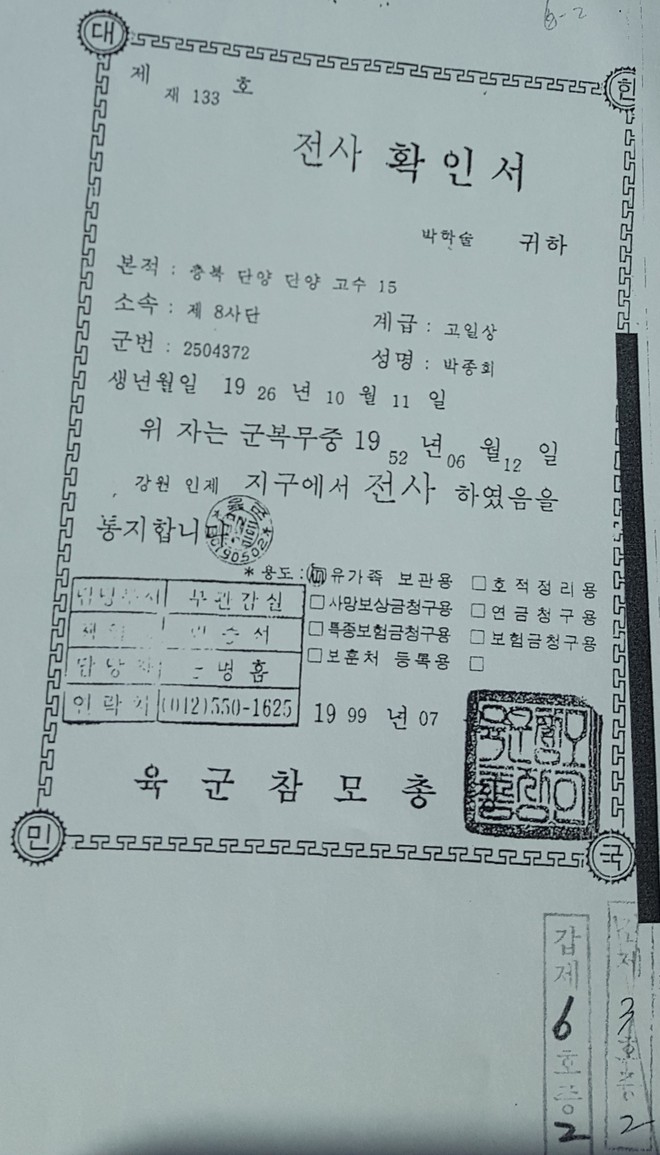 6-2
대 한
제 재 133 호
전사 확인서
박학술 귀하
본적 : 충북 단양 단양 고수 15
소속 : 제 8사단 계급 : 고일상
군번 : 2504372 성명 : 박종회
생년월일 19 26 년 10 월 11 일
위 자는 군복무중 19 52 년 06 월 12 일
강원 인제 지구에서 전사 하였음을
통지합니다
* 용도 : 유가족 보관용 □ 호적정리용
□ 사망보상금청구용 □ 연금청구용
□ 특종보험금청구용 □ 보험금청구용
□ 보훈처 등록용 □
부관감실
연락처 (012)550-1625
19 99 년 07
육군참모총장
민 국
갑제 6 호증 2
제 3 호증 2